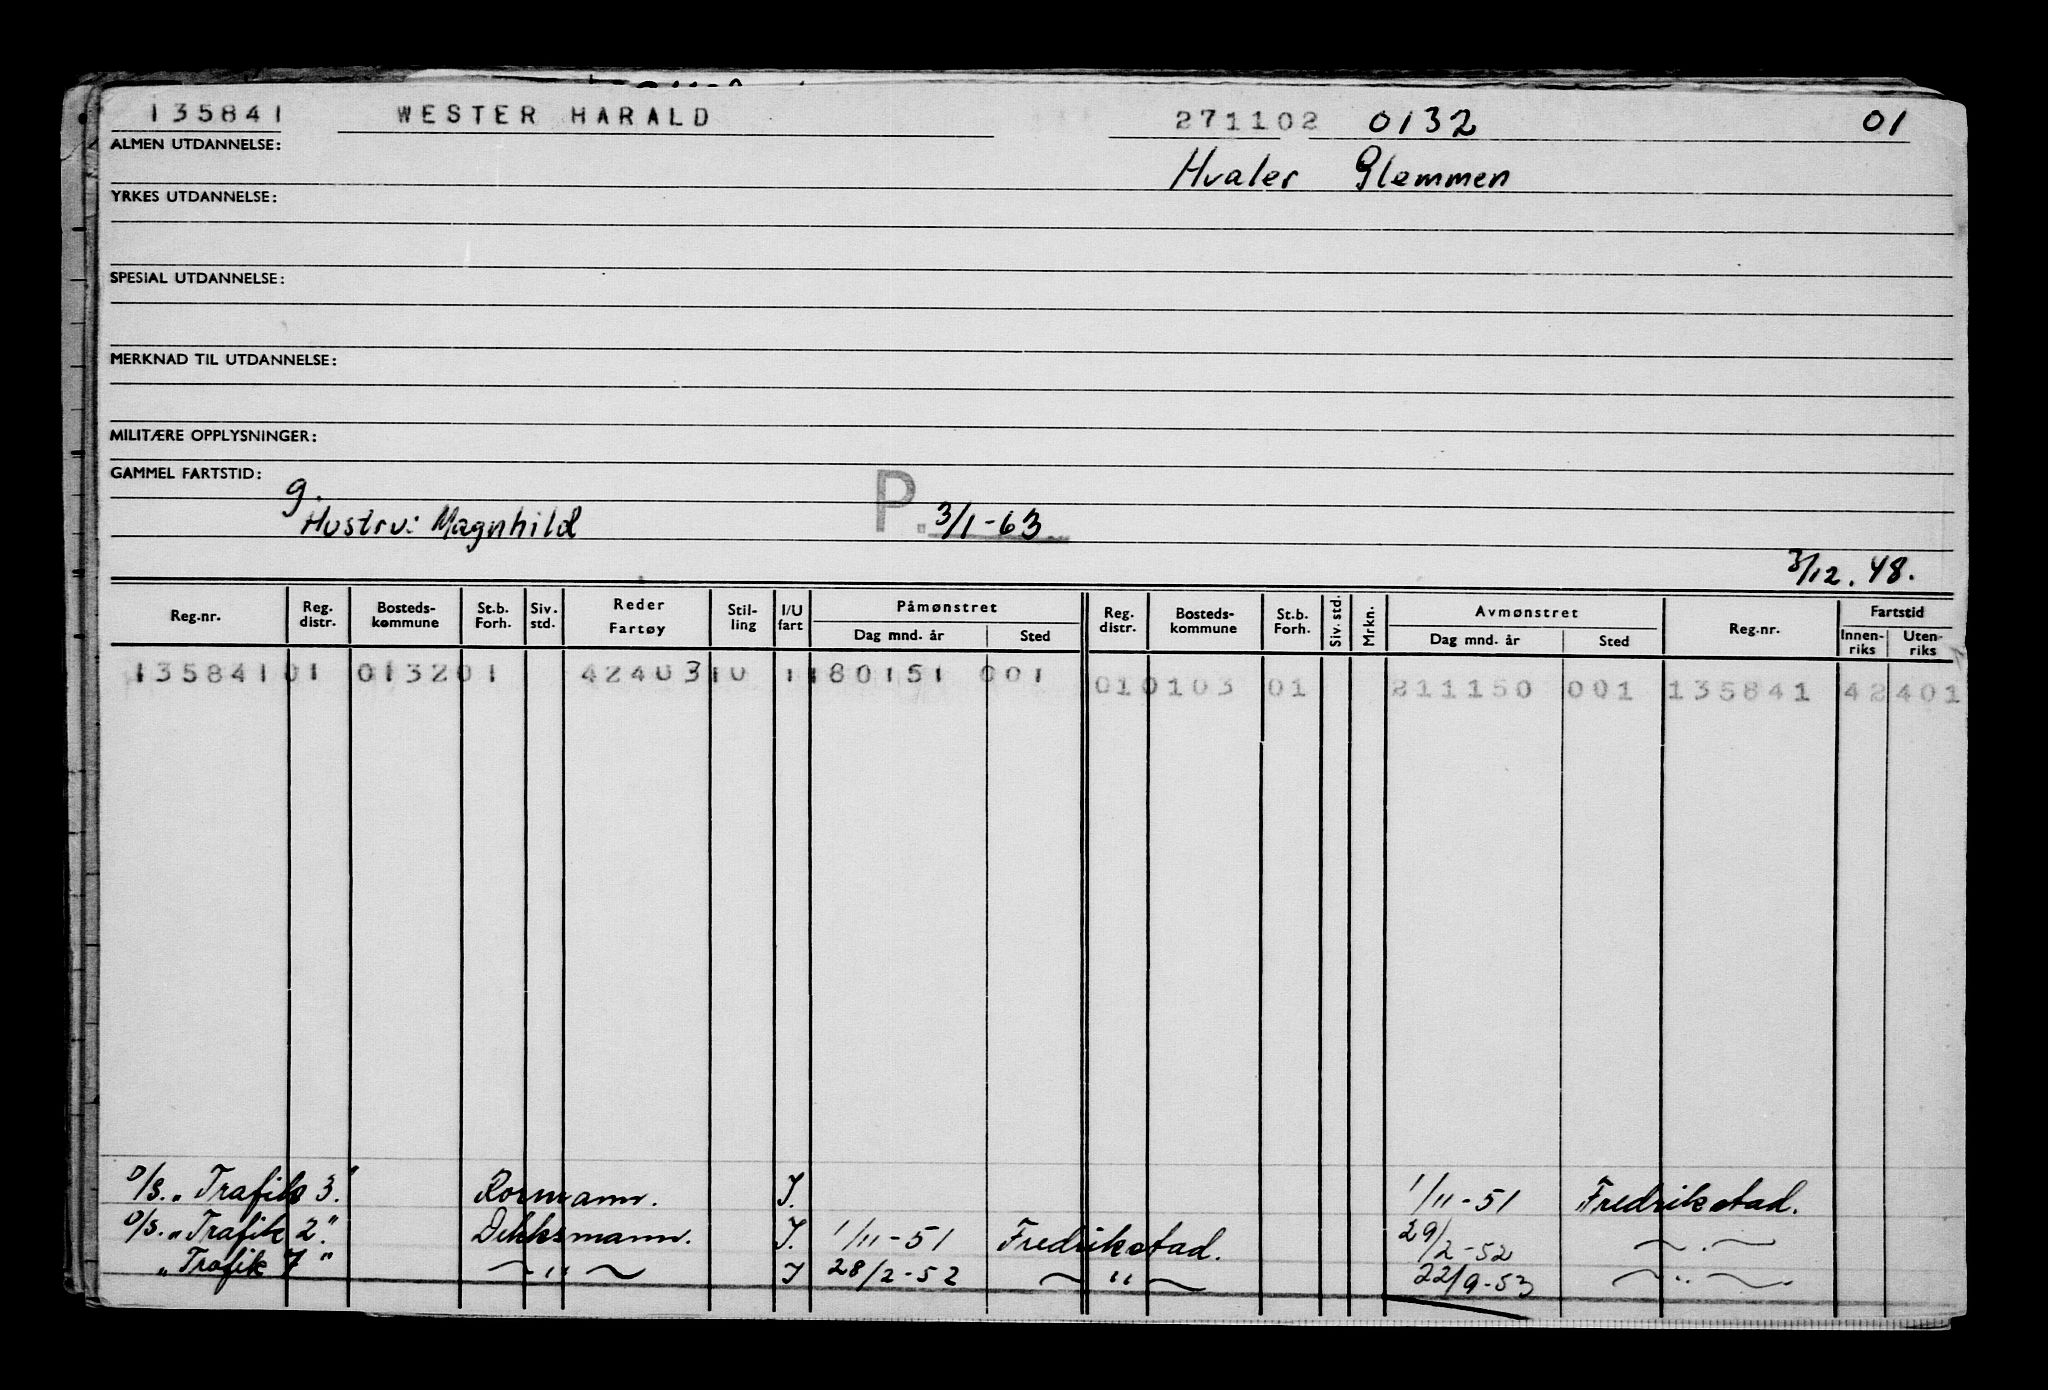 135841 WESTER HARALD 271102 0132 01
ALMEN UTDANNELSE:
Hvaler Glemmen
YRKES UTDANNELSE:
SPESIAL UTDANNELSE:
MERKNAD TIL UTDANNELSE:
MILITÆRE OPPLYSNINGER:
GAMMEL FARTSTID:
g.
Hustru: Magnhild P. 3/1-63
3/12.48.
Reg.nr. Reg. distr. Bosteds-kommune St.b. Forh. Siv. std. Reder Fartøy Stil-ling I/U fart Påmønstret Dag mnd. år Sted Reg. distr. Bosteds-kommune St.b. Forh. Siv. std. Mrkn. Avmønstret Dag mnd. år Sted Reg.nr. Fartstid Innen-riks Uten-riks
135841 01 0132 01 42403 10 1 180151 001
01 0103 01 211150 001 135841 42 401
D/S. "Trafik 3." Rormann. I. 1/11-51 Fredrikstad.
D/S. "Trafik 2." Dekksmann. I. 1/11-51 Fredrikstad. 29/2-52 ~.~
"Trafik 7" ~"~ I 28/2-52 ~"~ 22/9-53 ~"~.